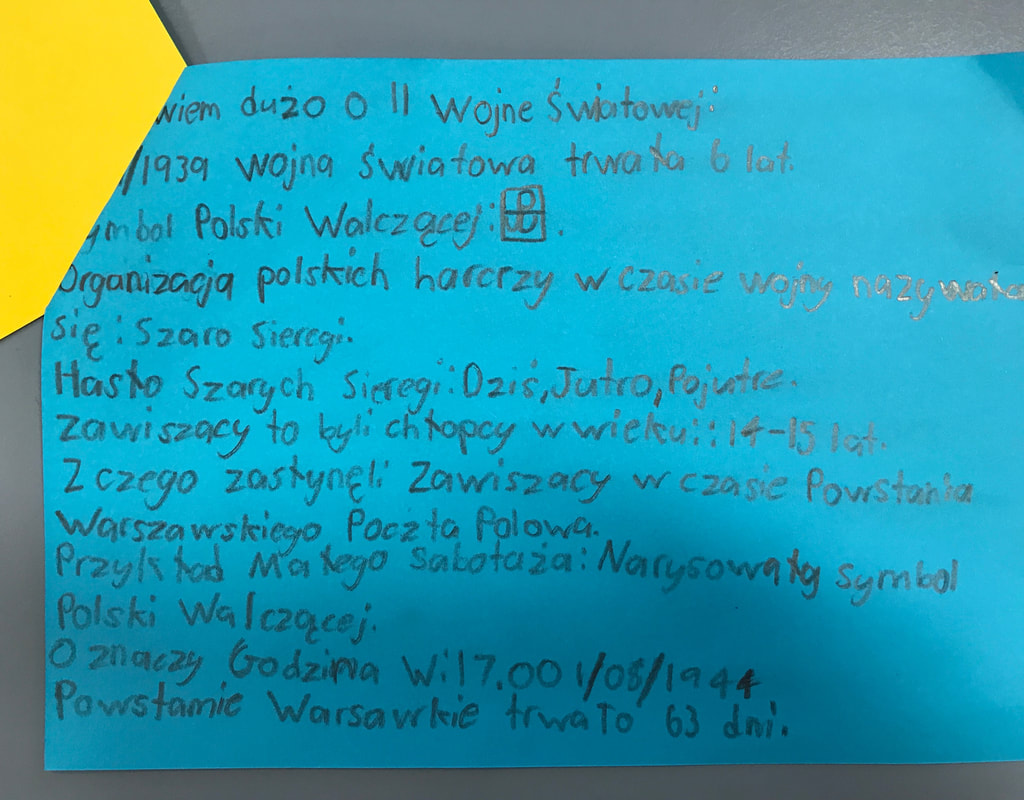 wiem dużo o II Wojne Światowej:
/1939 wojna światowa trwała 6 lat.
ymbol Polski Walczącej: .
Organizacja polskich harcrzy w czasie wojny nazywała
się: Szaro Sieregi.
Hasło Szarych Sieregi: Dziś, Jutro, Pojutrze.
Zawiszący to byli chłopcy w wieku:: 14-15 lat.
Z czego zasłynęli Zawiszacy w czasie Powstania
Warszawskiego Poczta Polowa.
Przykład Małego Sabotaża: Narysowały symbol
Polski Walczącej.
O znaczy Godzina W:17.00 1/08/1944
Powstamie Warsavrkie trwało 63 dni.